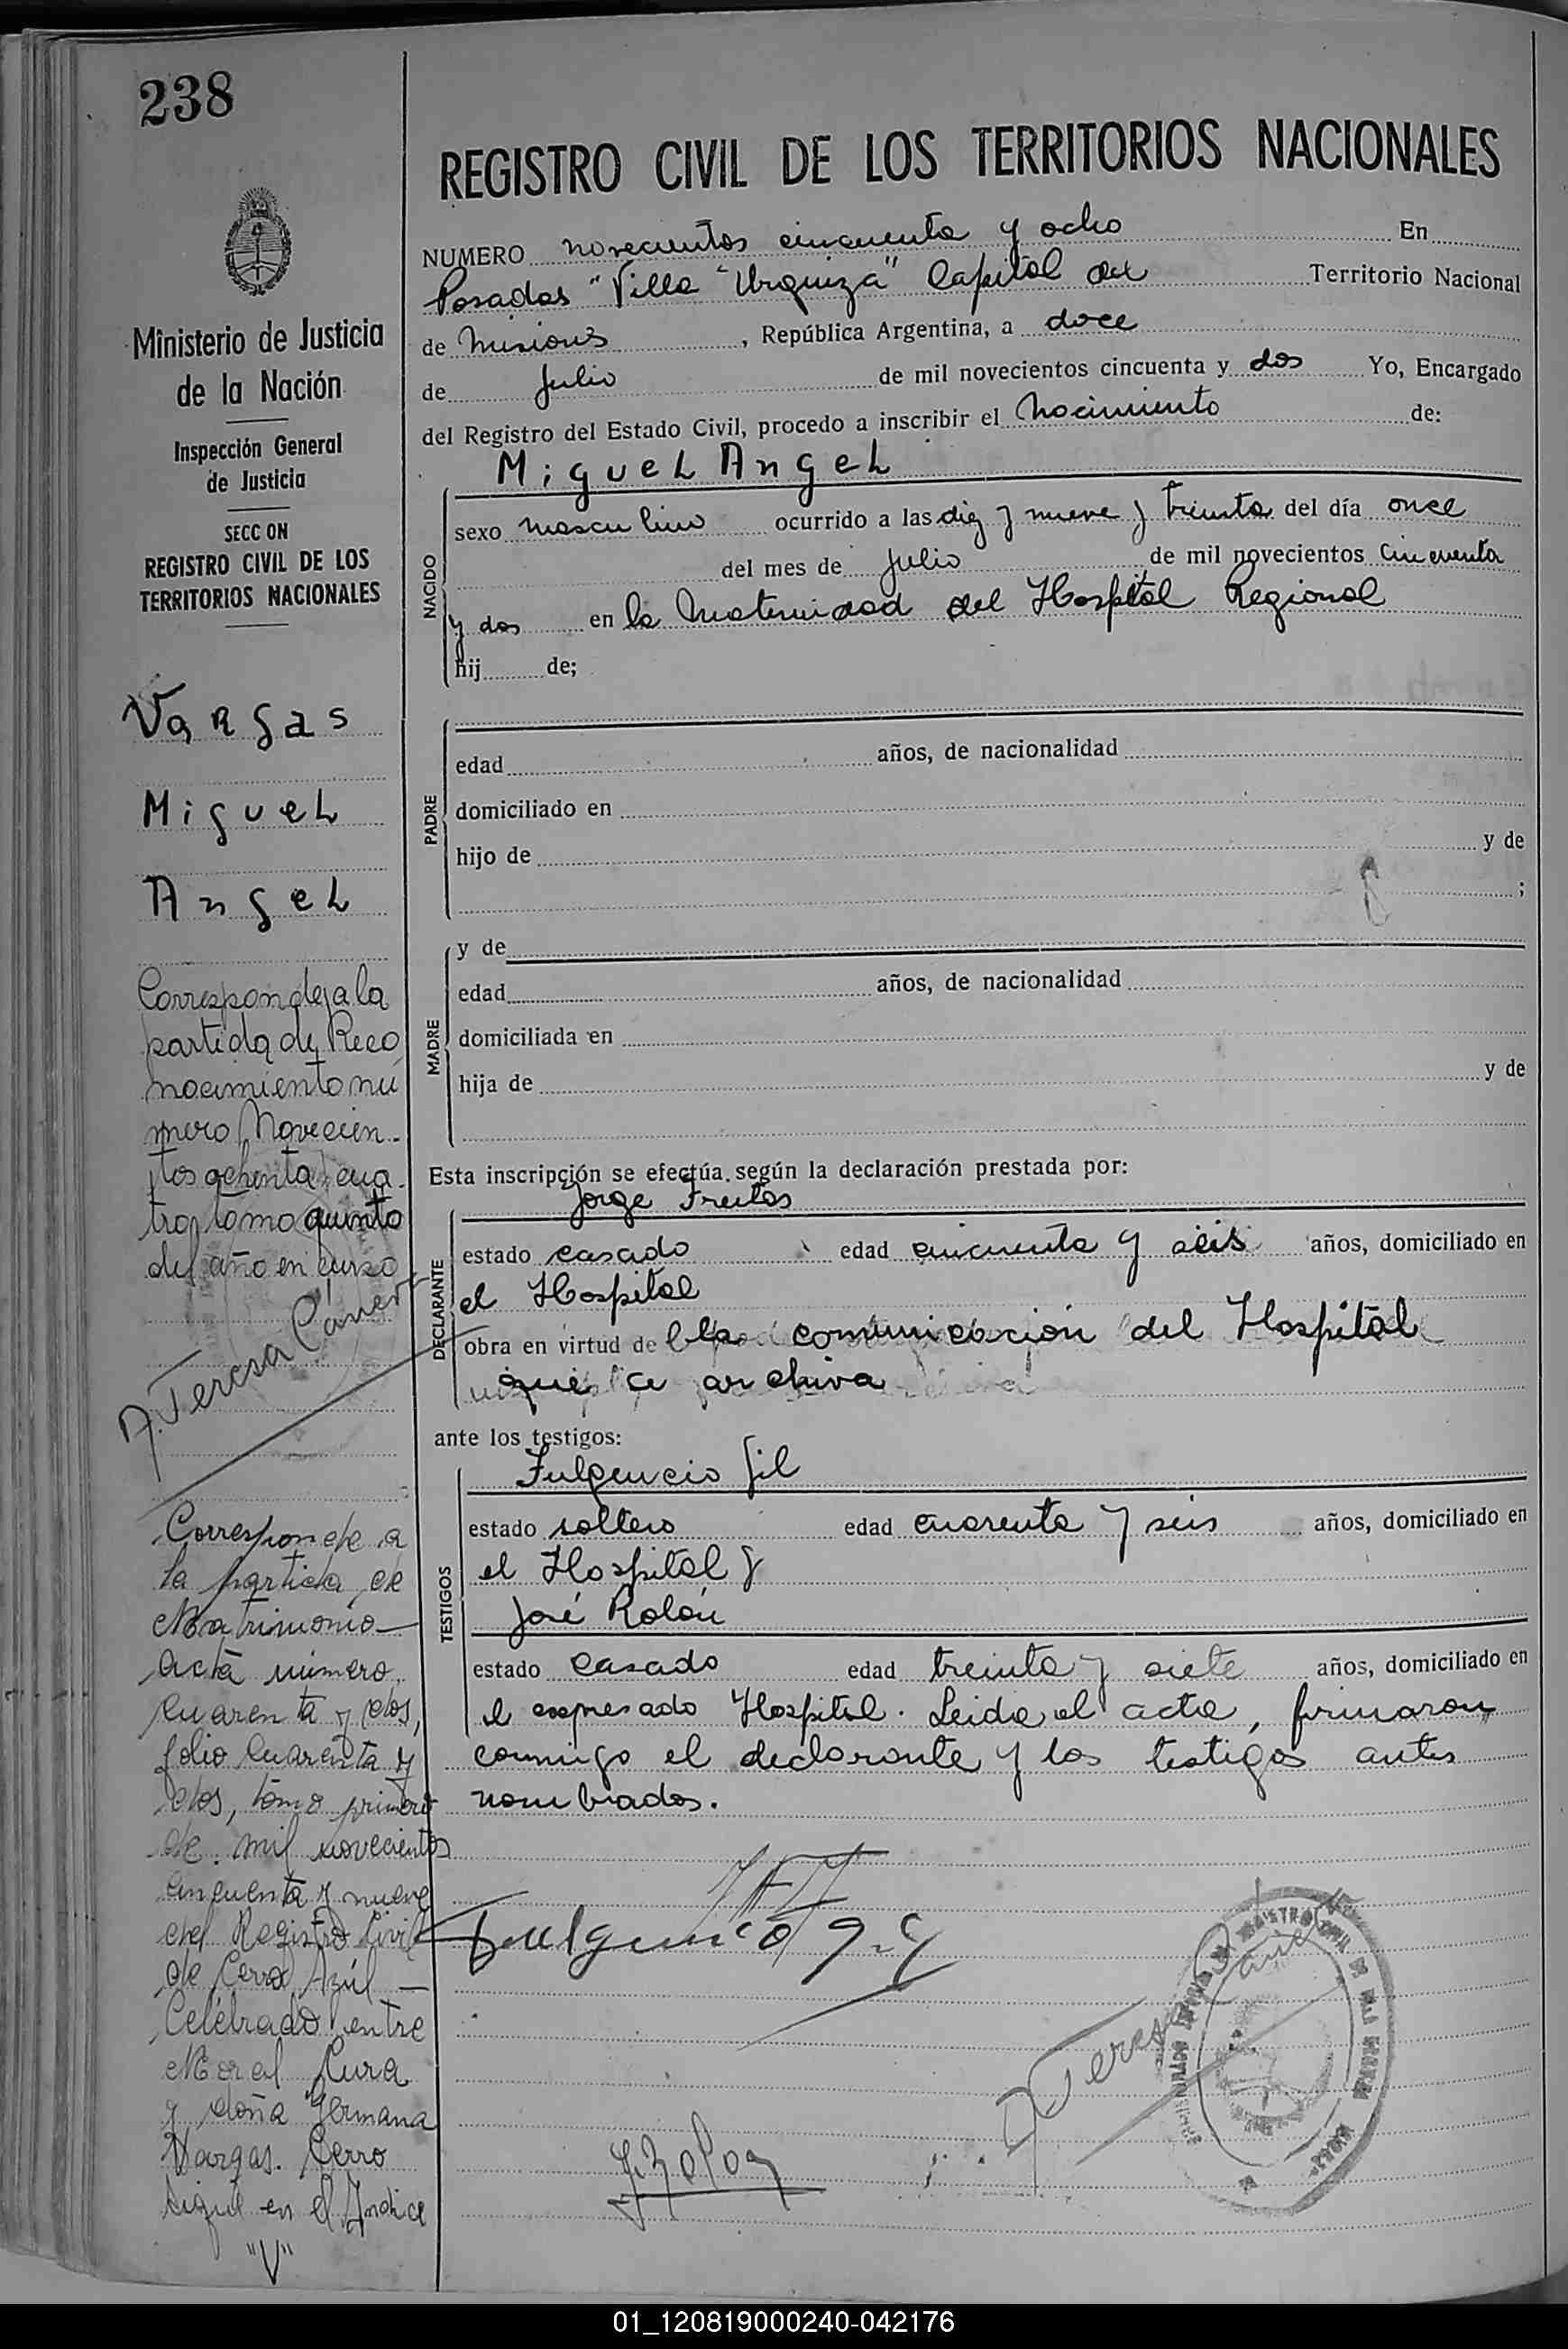 238
Ministerio de Justicia
de la Nación
Inspección General
de Justicia
SECC ON
REGISTRO CIVIL DE LOS
TERRITORIOS NACIONALES
Vargas
Miguel
Angel
Corresponde a la
partida de Reco
nocimiento nú
mero Novecien-
tos ochenta cua-
tro tomo quinto
del año en curso
A. Teresa
Corresponde a
la partida de
Matrimonio
acta número
cuarenta y dos,
folio cuarenta y
dos, tomo primero
de mil novecientos
cincuenta y nueve
del Registro Civil
de Cerro Azúl —
Celébrado entre
y doña Germana
Vargas. Cerro
sigue en el Indice
"V"
REGISTRO CIVIL DE LOS TERRITORIOS NACIONALES
NUMERO novecientos cincuenta y ocho En
Posadas "Villa "Urquiza" Capital del Territorio Nacional
de Misiones, República Argentina, a doce
de Julio de mil novecientos cincuenta y dos Yo, Encargado
del Registro del Estado Civil, procedo a inscribir el Nacimiento de:
Miguel Angel
NACIDO
sexo masculino ocurrido a las diez y nueve y treinta del día once
del mes de Julio de mil novecientos cincuenta
y dos en la Maternidad del Hospital Regional
hij de;
PADRE
edad años, de nacionalidad
domiciliado en
hijo de y de
;
MADRE
y de
edad años, de nacionalidad
domiciliada en
hija de y de
Esta inscripción se efectúa según la declaración prestada por:
Jorge Freitas
DECLARANTE
estado casado edad cincuenta y seis años, domiciliado en
el Hospital
obra en virtud de la comunicación del Hospital
que se archiva
ante los testigos:
TESTIGOS
Fulgencio Gil
estado soltero edad cuarenta y seis años, domiciliado en
el Hospital y
José Rolón
estado casado edad treinta y siete años, domiciliado en
el expresado Hospital. Leida el acta, firmaron
conmigo el declarante y los testigos antes
nombrados.
Fulgencio Gil
A. Teresa
J. Rolon
01_120819000240-042176